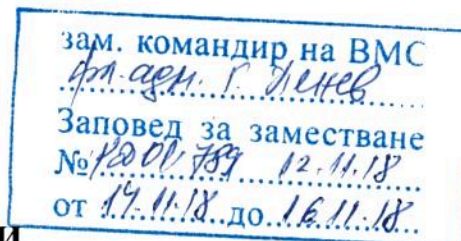 зам. командир на ВМС
фл. адм. Г. Пенев
Заповед за заместване
№ 12.11.18
от 14.11.18 до 16.11.18
И